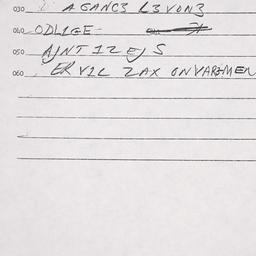 030 AGANCS L3VON3
040 ODLIGE
050 AJNT 12 EJS
060 ERVIL ZAX ONVARMEN